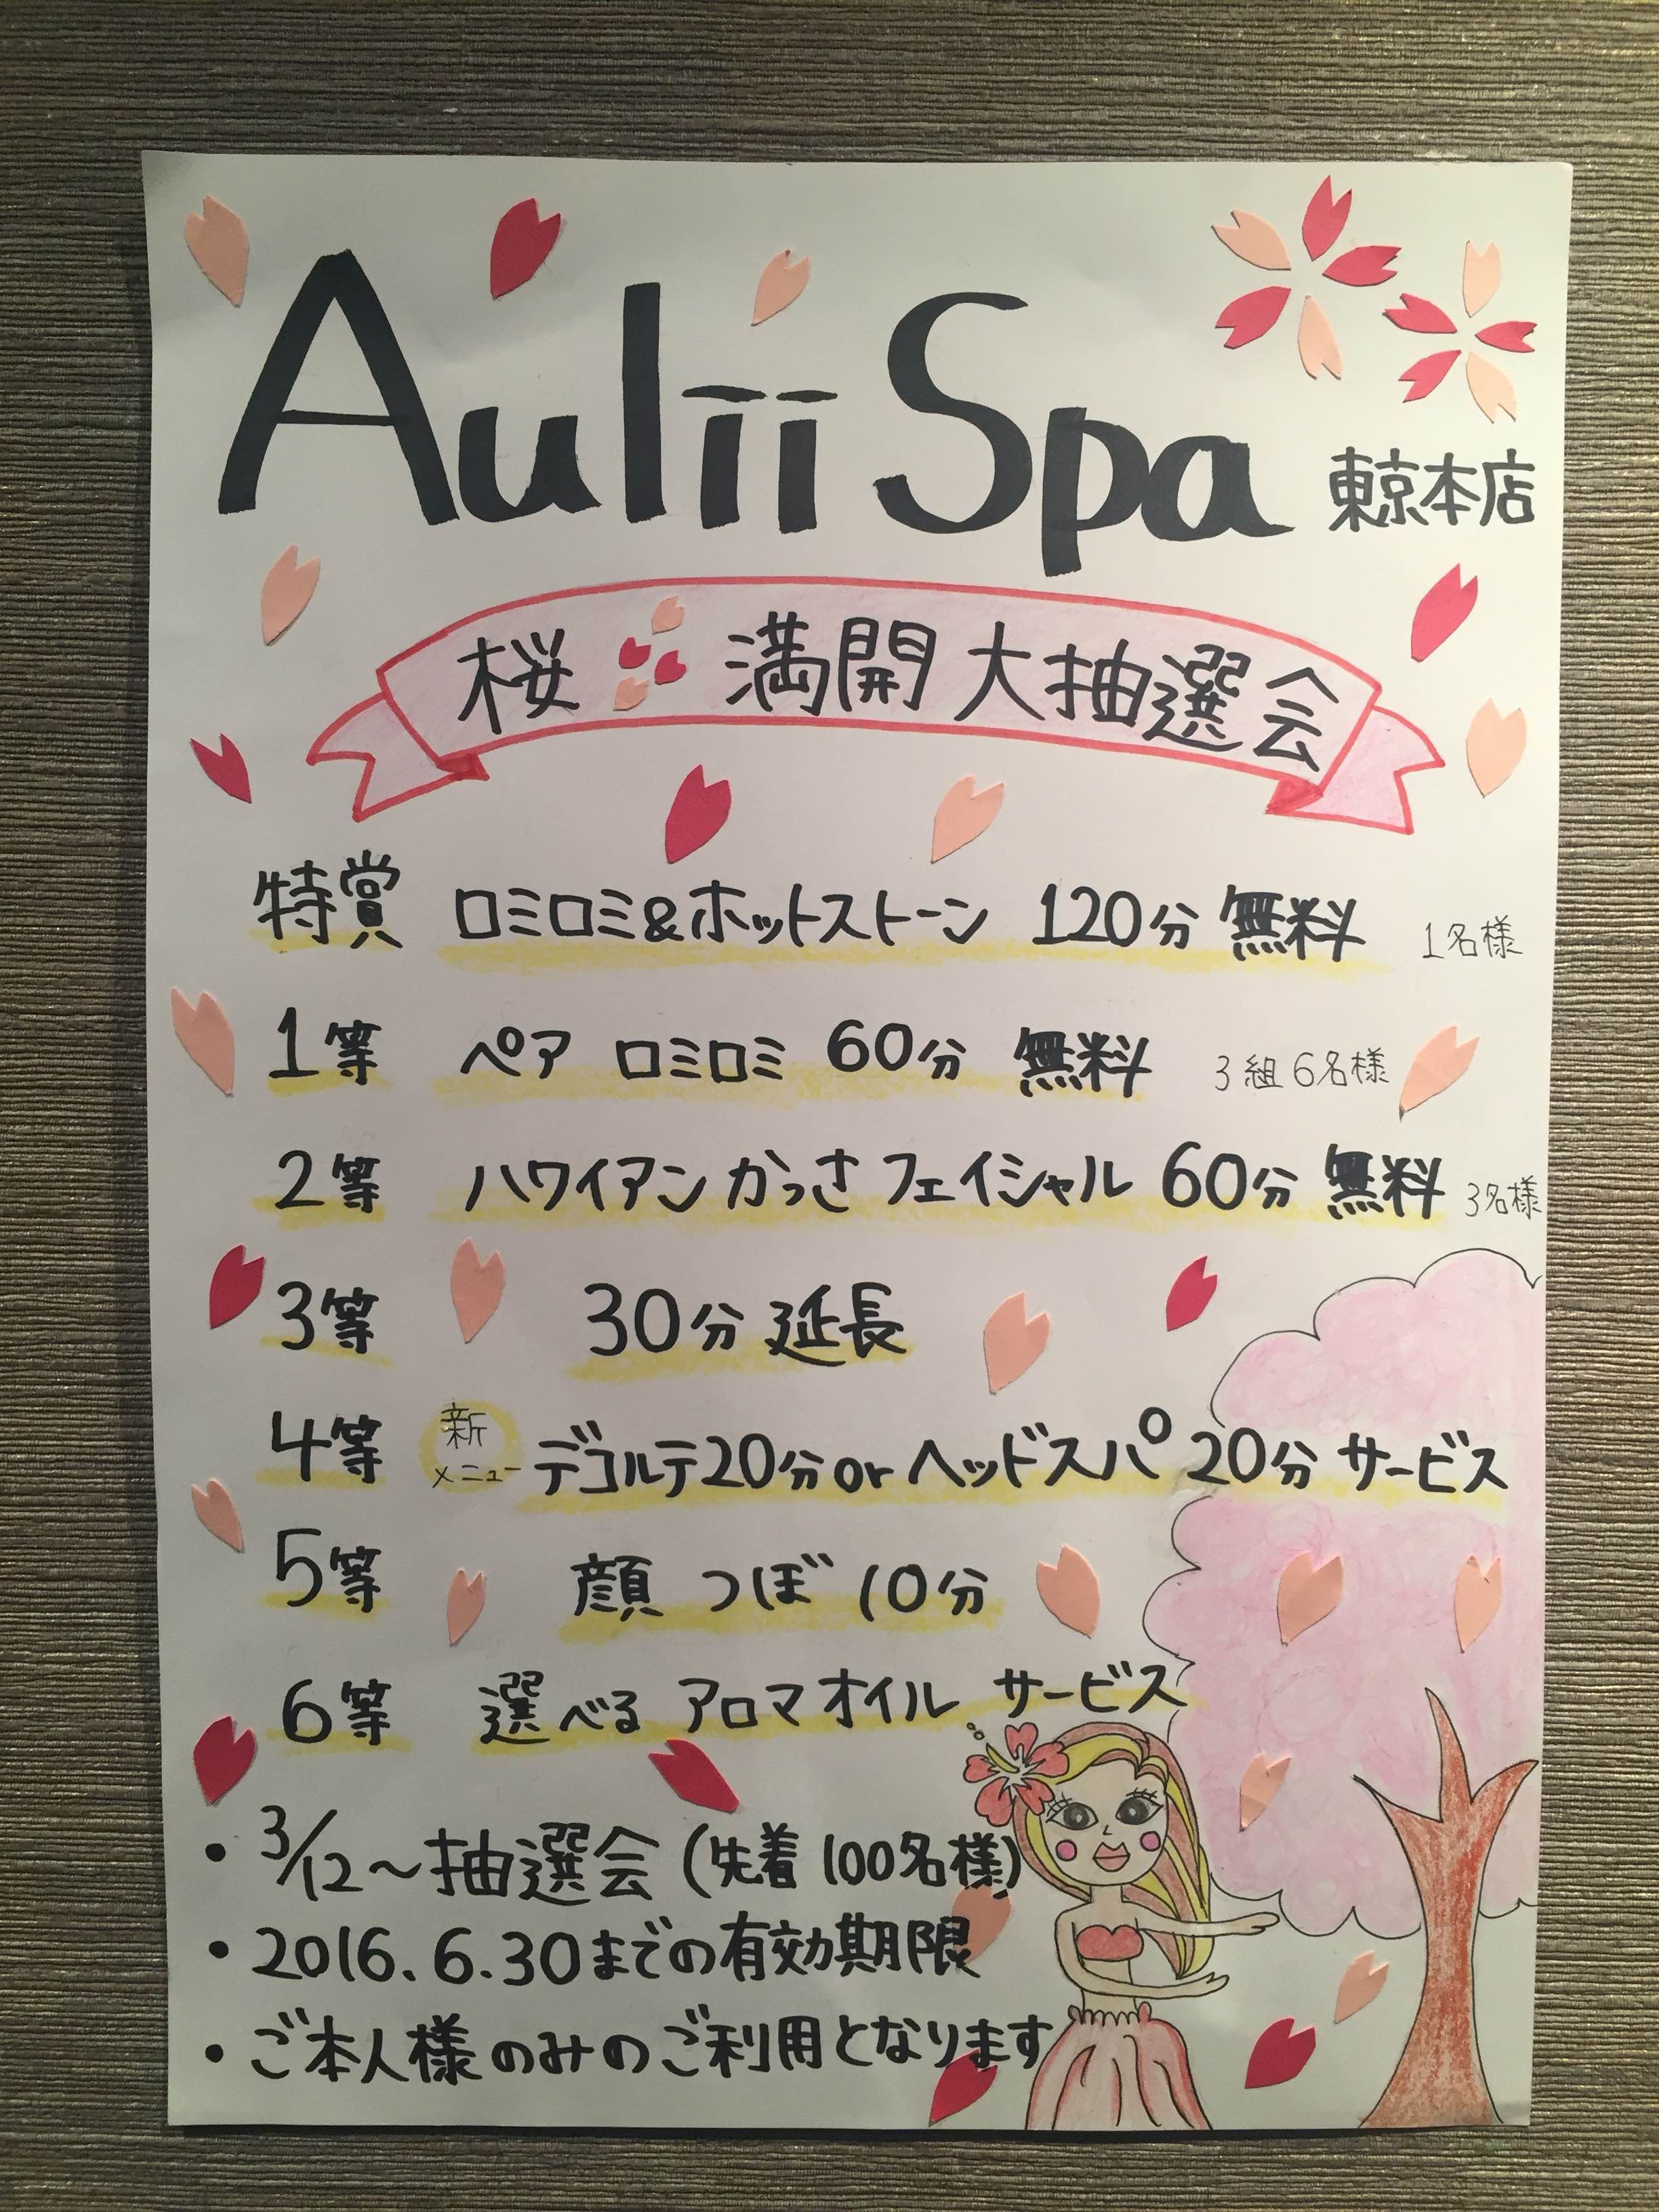 Aulii Spa 東京本店
桜 満開 大抽選会
特賞 ロミロミ&ホットストーン 120分 無料 1名様
1等 ペア ロミロミ 60分 無料 3組6名様
2等 ハワイアン かっさ フェイシャル 60分 無料 3名様
3等 30分 延長
4等 新メニュー デコルテ20分 or ヘッドスパ 20分 サービス
5等 顔 つぼ 10分
6等 選べる アロマオイル サービス
・3/12~抽選会(先着 100名様)
・2016.6.30までの有効期限
・ご本人様のみのご利用となります